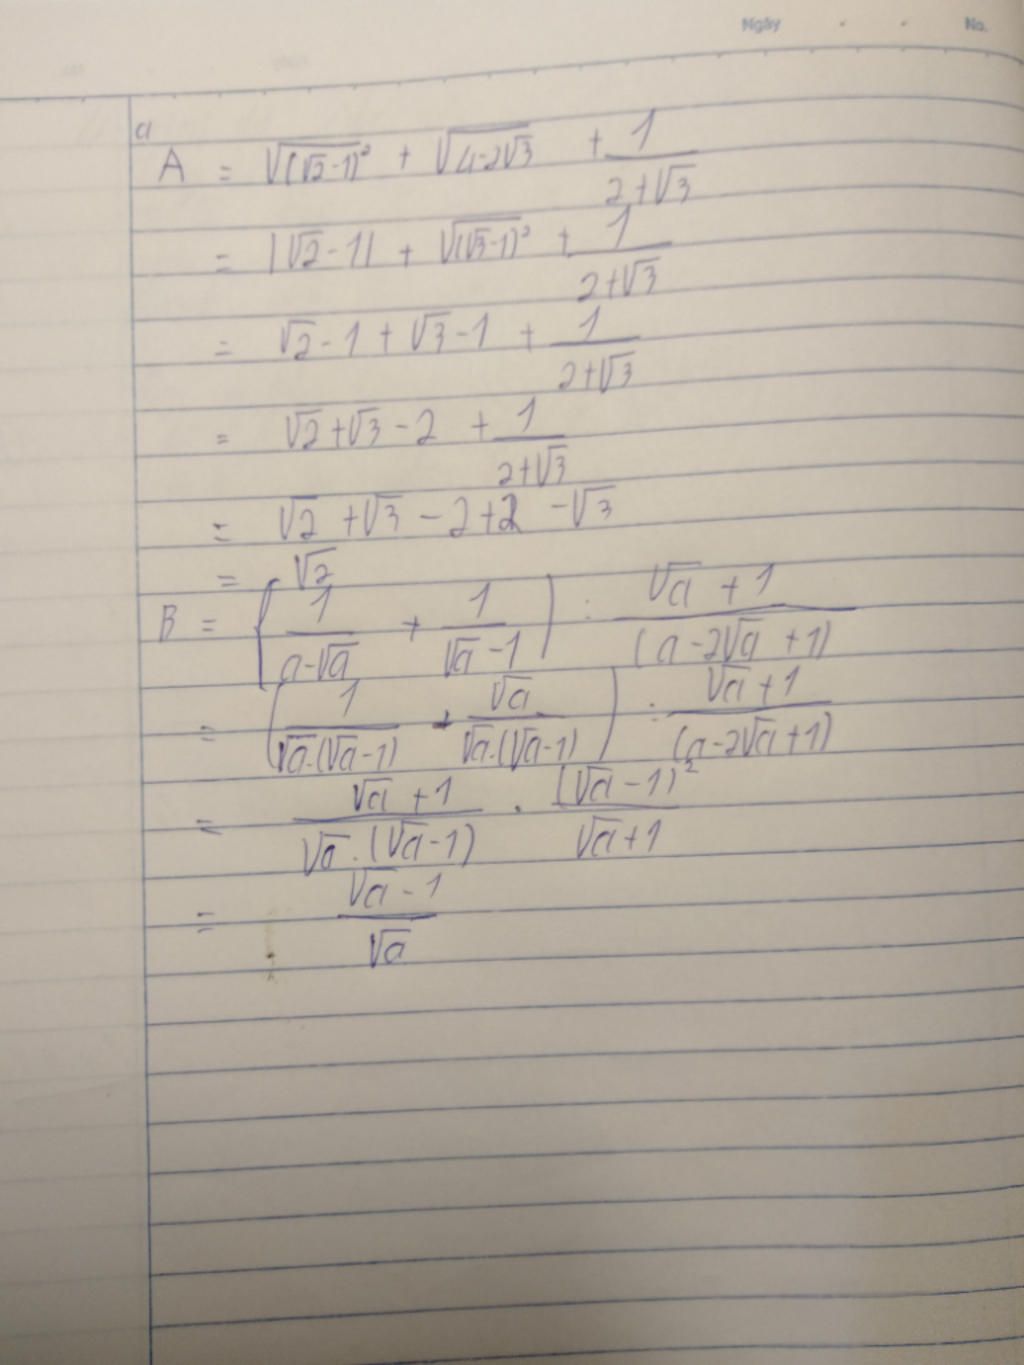 Ngày . . No.
a
A = √(√2-1)² + √4-2√3 + 1/(2+√3)
= |√2-1| + √(√3-1)² + 1/(2+√3)
= √2-1+√3-1 + 1/(2+√3)
= √2+√3-2 + 1/(2+√3)
= √2+√3-2+2-√3
= √2
B = (1/(a-√a) + 1/(√a-1)) : (√a+1)/(a-2√a+1)
= (1/(√a.(√a-1)) + √a/(√a.(√a-1))) : (√a+1)/(a-2√a+1)
= (√a+1)/(√a.(√a-1)) . (√a-1)²/(√a+1)
= (√a-1)/√a